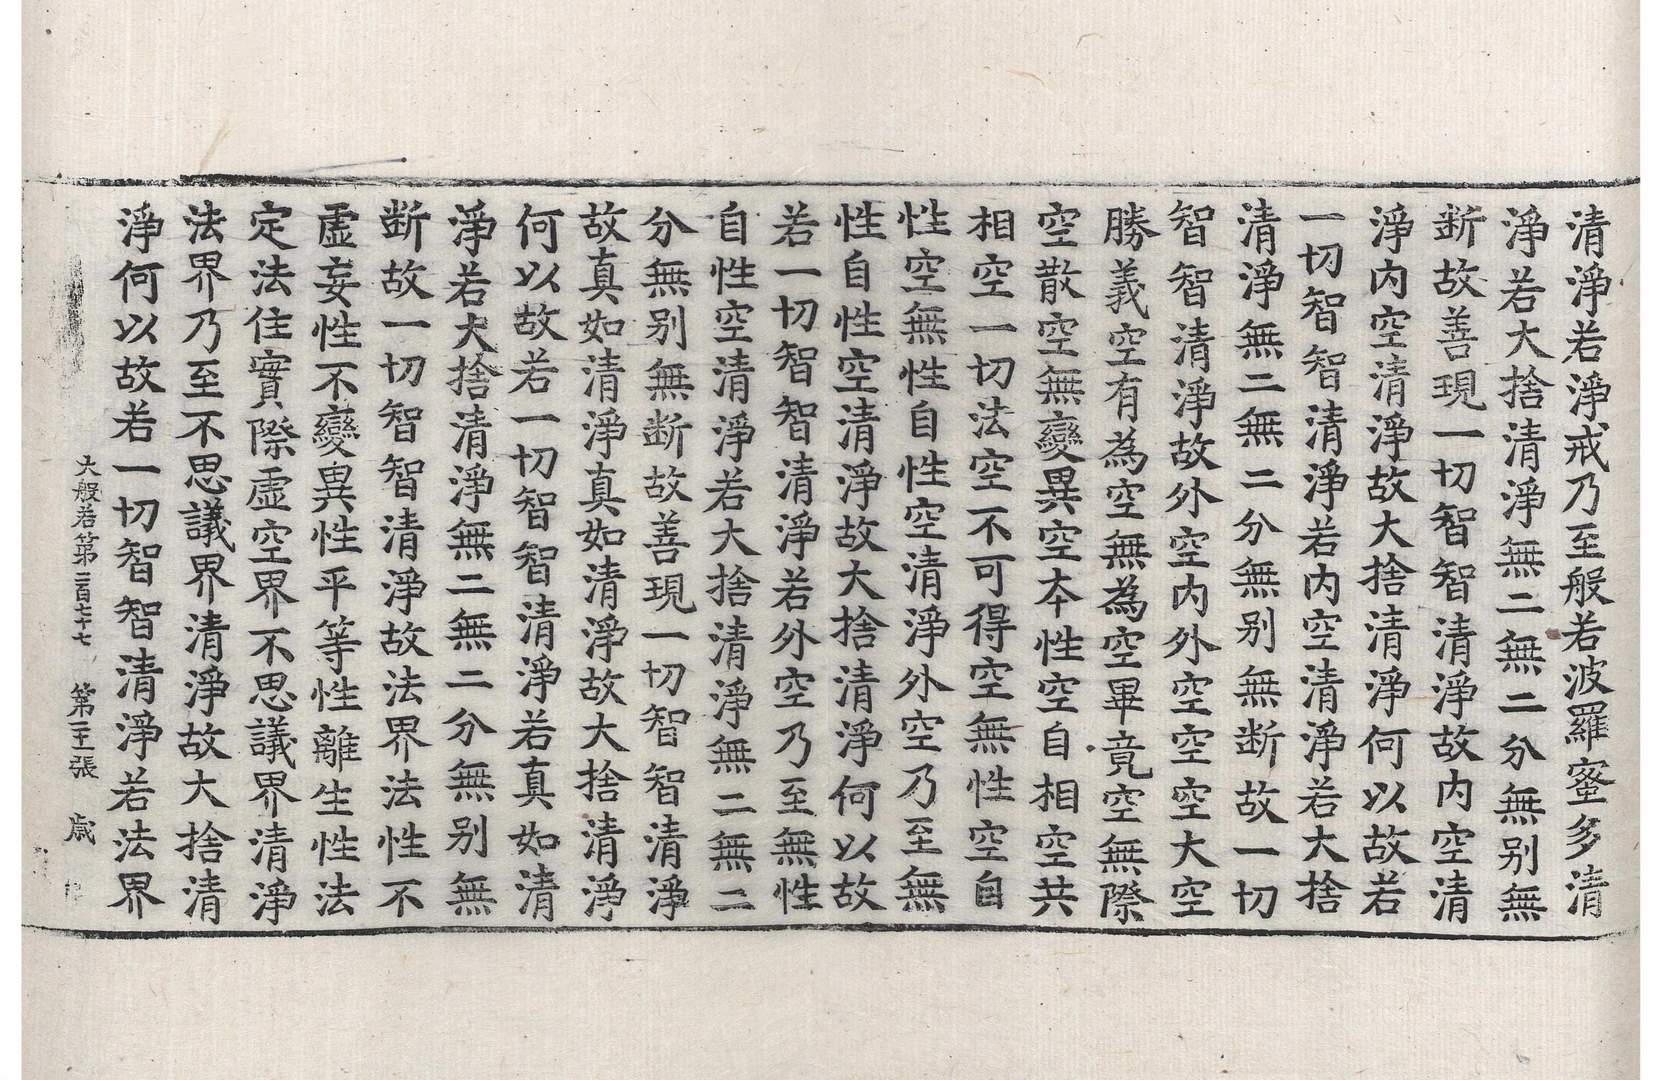 清淨若淨戒乃至般若波羅蜜多清
淨若大捨清淨無二無二分無別無
断故善現一切智智清淨故內空清
淨內空清淨故大捨清淨何以故若
一切智智清淨若內空清淨若大捨
清淨無二無二分無別無断故一切
智智清淨故外空內外空空空大空
勝義空有為空無為空畢竟空無際
空散空無變異空本性空自相空共
相空一切法空不可得空無性空自
性空無性自性空清淨外空乃至無
性自性空清淨故大捨清淨何以故
若一切智智清淨若外空乃至無性
自性空清淨若大捨清淨無二無二
分無別無断故善現一切智智清淨
故真如清淨真如清淨故大捨清淨
何以故若一切智智清淨若真如清
淨若大捨清淨無二無二分無別無
断故一切智智清淨故法界法性不
虛妄性不變異性平等性離生性法
定法住實際虛空界不思議界清淨
法界乃至不思議界清淨故大捨清
淨何以故若一切智智清淨若法界
大般若第二百七十七 第二十二張 歲